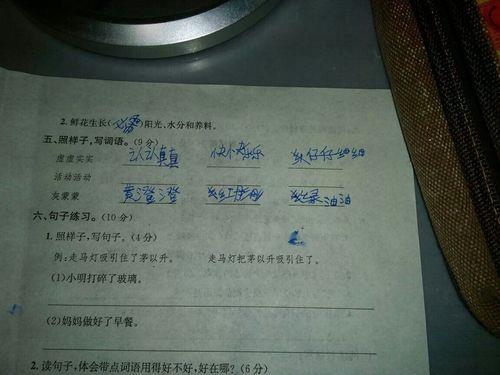 2. 鲜花生长(必需)阳光、水分和养料。
五、照样子,写词语。(9分)
虚虚实实 认认真真 快快乐乐 仔仔细细
活动活动
灰蒙蒙 黄澄澄 红彤彤 绿油油
六、句子练习。(10分)
1. 照样子,写句子。(4分)
例:走马灯吸引住了茅以升。 走马灯把茅以升吸引住了。
(1)小明打碎了玻璃。
(2)妈妈做好了早餐。
2. 读句子,体会带点词语用得好不好,好在哪?(6分)